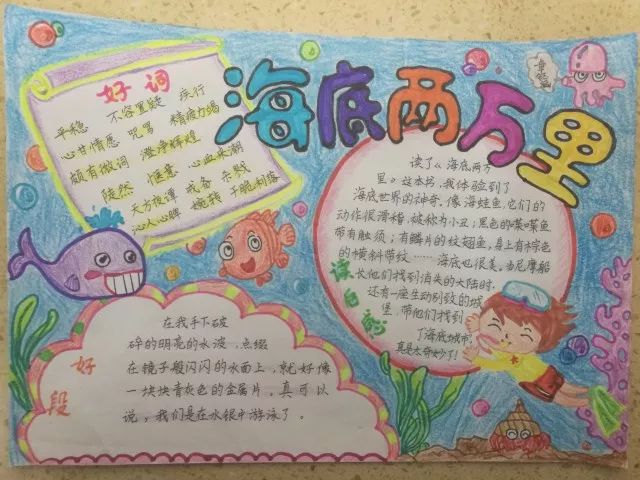 海底两万里
章鱼
好词
平稳 不容置疑 疾行
心甘情愿 咒骂 精疲力竭
颇有微词 澄净辉煌
陡然 惬意 心血来潮
天方夜谭 戒备 杀戮
沁人心脾 婉转 干脆利落
读了《海底两万
里》这本书,我体验到了
海底世界的神奇。像海蛙鱼,它们的
动作很滑稽,被称为小丑;黑色的喋喋鱼
带有触须;有鳞片的纹翅鱼,身上有棕色
的横斜带纹……海底也很美。当尼摩船
长他们找到消失的大陆时,
还有一座生动别致的城
堡,带他们找到
了海底城市,
真是太奇妙了!
读后感
好段
在我手下破
碎的明亮的水波,点缀
在镜子般闪闪的水面上,就好像
一块块青灰色的金属片,真可以
说,我们是在水银中游泳了。